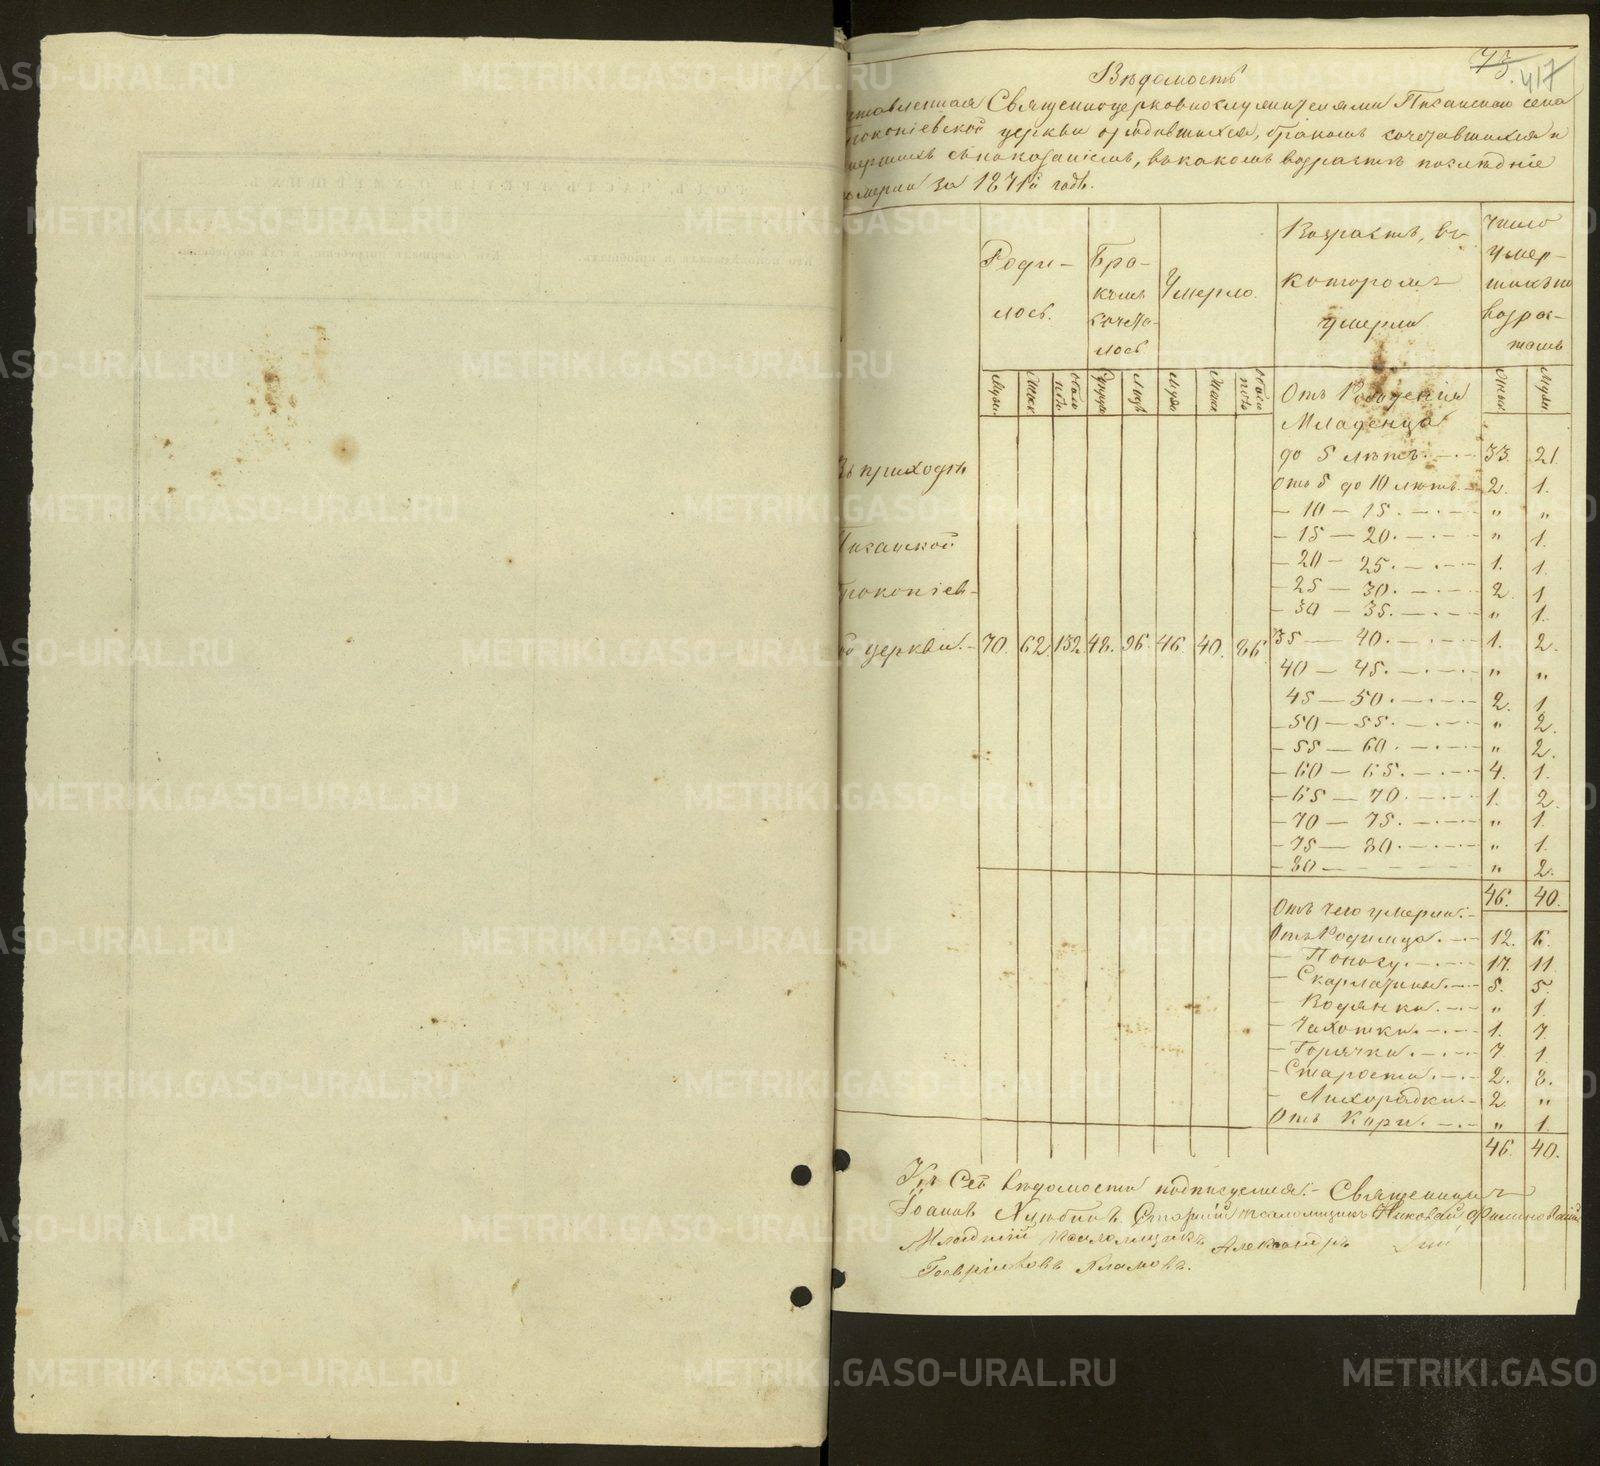 73. 417
Вѣдомость
ставленная Священноцерковнослужителями Писанскаго села
Прокопіевской церкви о родившихся, бракомъ сочетавшихся и
мершихъ съ показаніемъ, въ какомъ возрастѣ послѣдніе
померли за 1871й годъ.
Роди-
лось.
Бра-
комъ
сочета-
лось
Умерло.
Возрастъ, въ
которомъ
умерли
Число
умер-
шихъ по
возрас-
тамъ
Муж. Жен. обоего полъ Супруж. Лицъ Муж. Жен. обоего полъ
Отъ Рожденія
Младенца
до 5 лѣтъ. 33. 21.
Отъ 5 до 10 лѣтъ. 2. 1.
— 10 — 15. „ „
— 15 — 20. „ 1.
— 20 — 25. 1. 1.
— 25 — 30. 2. 1.
— 30 — 35. „ 1.
35 — 40. 1. 2.
40 — 45. „ „
45 — 50. 2. 1.
— 50 — 55. „ 2.
— 55 — 60. „ 2.
— 60 — 65. 4. 1.
— 65 — 70. 1. 2.
— 70 — 75. „ 1.
— 75 — 80. „ 1.
— 80 — „ 2.
46. 40.
Въ приходѣ
Писанской
Прокопіев-
ой церкви. 70. 62. 132. 48. 96. 46. 40. 86.
Отъ чего умерли:
Отъ Родимца. 12. 6.
— Поносу. 17. 11.
— Скарлатины. 5. 5.
— Водянки. „ 1.
— Чахотки. 1. 7.
— Горячки. 7. 1.
— Старости. 2. 8.
— Лихорадки. 2. „
Отъ Кори. „ 1.
46. 40.
Къ Сей вѣдомости подписуемся: Священникъ
Іоаннъ Старшій псаломщикъ Николай
Младшій псаломщикъ Александръ
METRIKI.GASO-URAL.RU